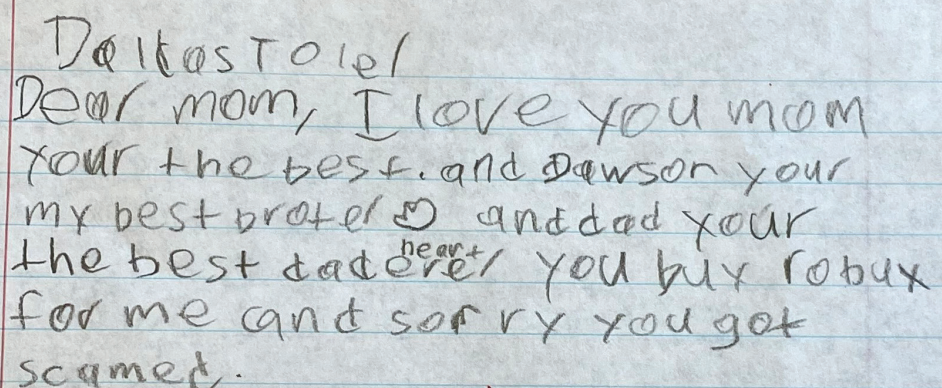 Dear mom, I love you mom
your the best. and Dawson your
my best broter and dad your
the best dad ever you buy robux
heart
for me and sorry you got
scamed.